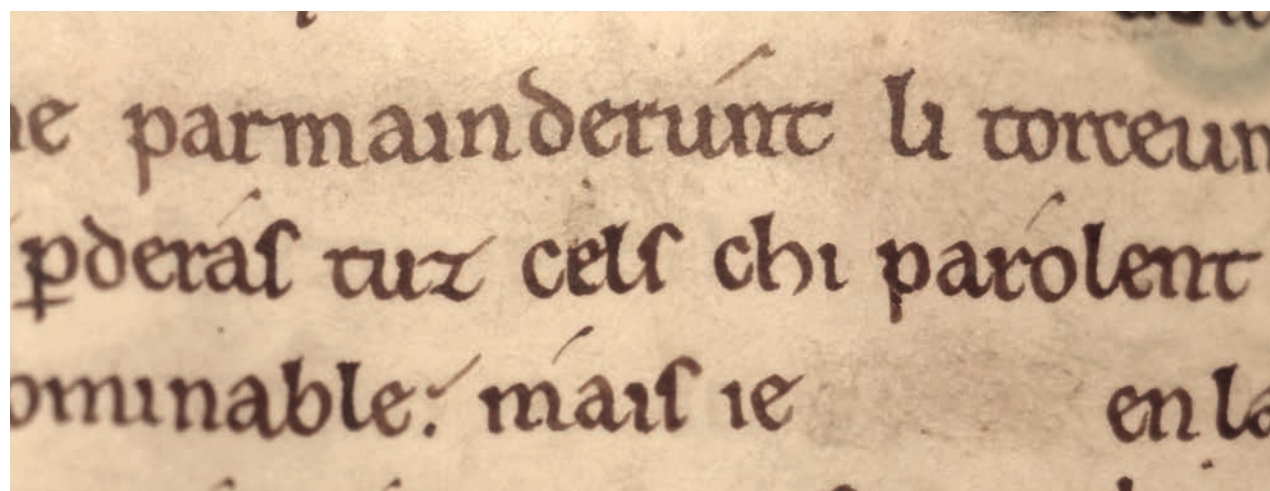 ne parmainderúnt li torceun
ꝑderás tuz cels chi parólent
ominable: máis ie en la